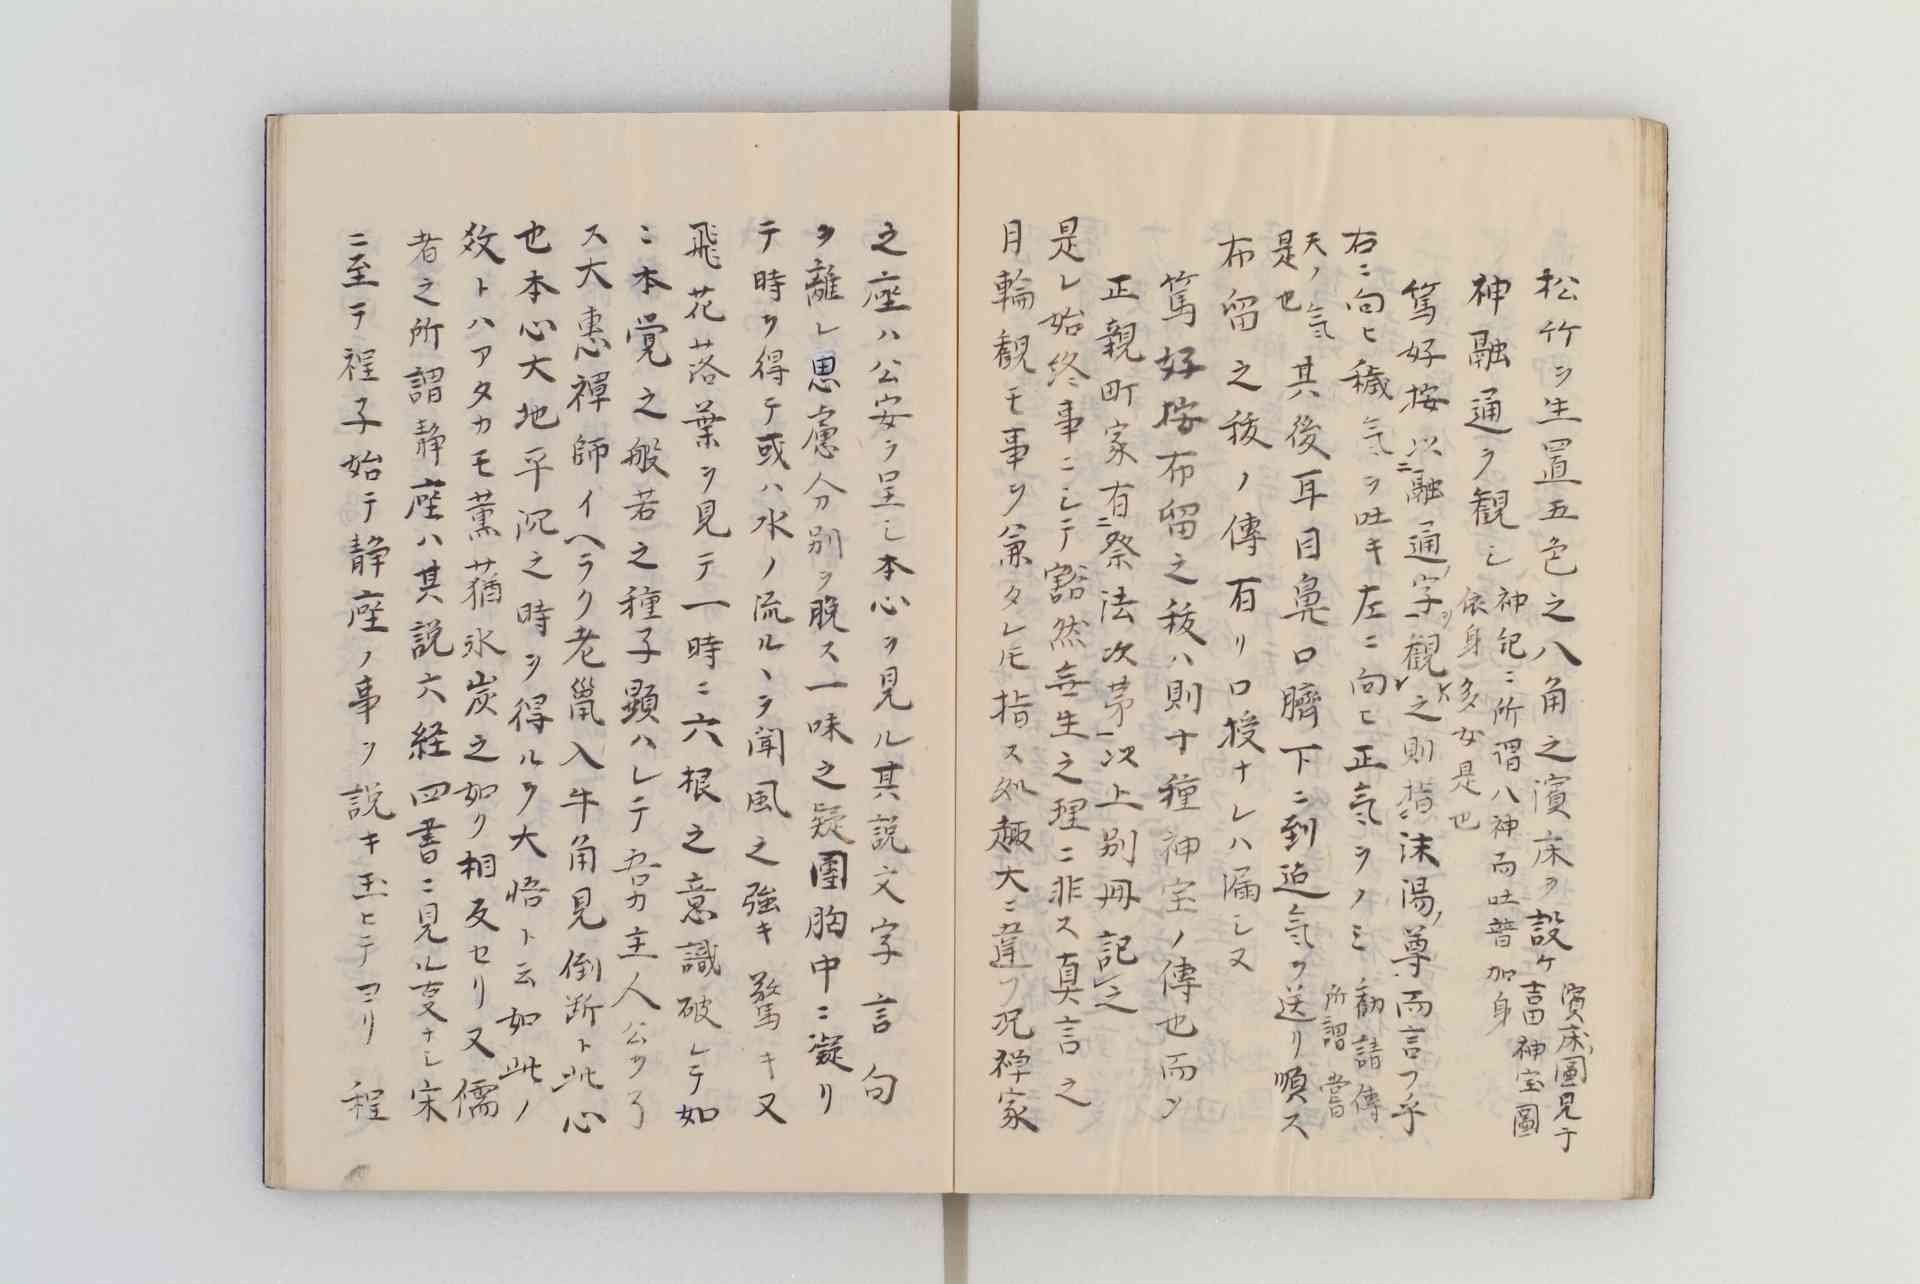 松竹ヲ生置五色之八角之濱床ヲ設ケ
濱床圖見于
吉田神宝圖
神融通ヲ観シ
神記ニ所謂八神而吐普加身
依身多女是也
篤好按以融通ノ字ヲ観之則指沫湯ノ尊而言フ乎
右ニ向ヒ穢氣ヲ吐キ左ニ向ヒ正氣ヲノミ
勧請傳
所謂嘗
天ノ氣
是也
其後耳目鼻口臍下ニ到迠氣ヲ送リ順ス
布留之秡ノ傳有リ口授ナレハ漏シ又
篤好按布留之秡ハ則十種神宝ノ傳也而ノ
正親町家有祭法次苐一次上別冊記之
是レ始終事ニシテ豁然無生之理ニ非ス真言之
月輪観モ事ヲ兼タレ𪜈指ス処趣大ニ違フ况禅家
之座ハ公安ヲ呈シ本心ヲ見ル其説文字言句
ヲ離レ思慮分别ヲ脱ス一味之疑團胸中ニ凝リ
テ時ヲ得テ或ハ水ノ流ルヽヲ聞風之強キ驚キ又
飛花落葉ヲ見テ一時ニ六根之意識破レテ如
ニ本覚之般若之種子顕ハレテ吾カ主人公ヲ了
ス大惠禅師イヘラク老鼠入牛角見倒断ト此心
也本心大地平沉之時ヲ得ルヲ大悟ト云如此ノ
效トハアタカモ薫蕕氷炭之如ク相反セリ又儒
者之所謂静座ハ其説六経四書ニ見ル㕝ナシ宋
ニ至テ程子始テ静座ノ事ヲ説キ玉ヒテヨリ程